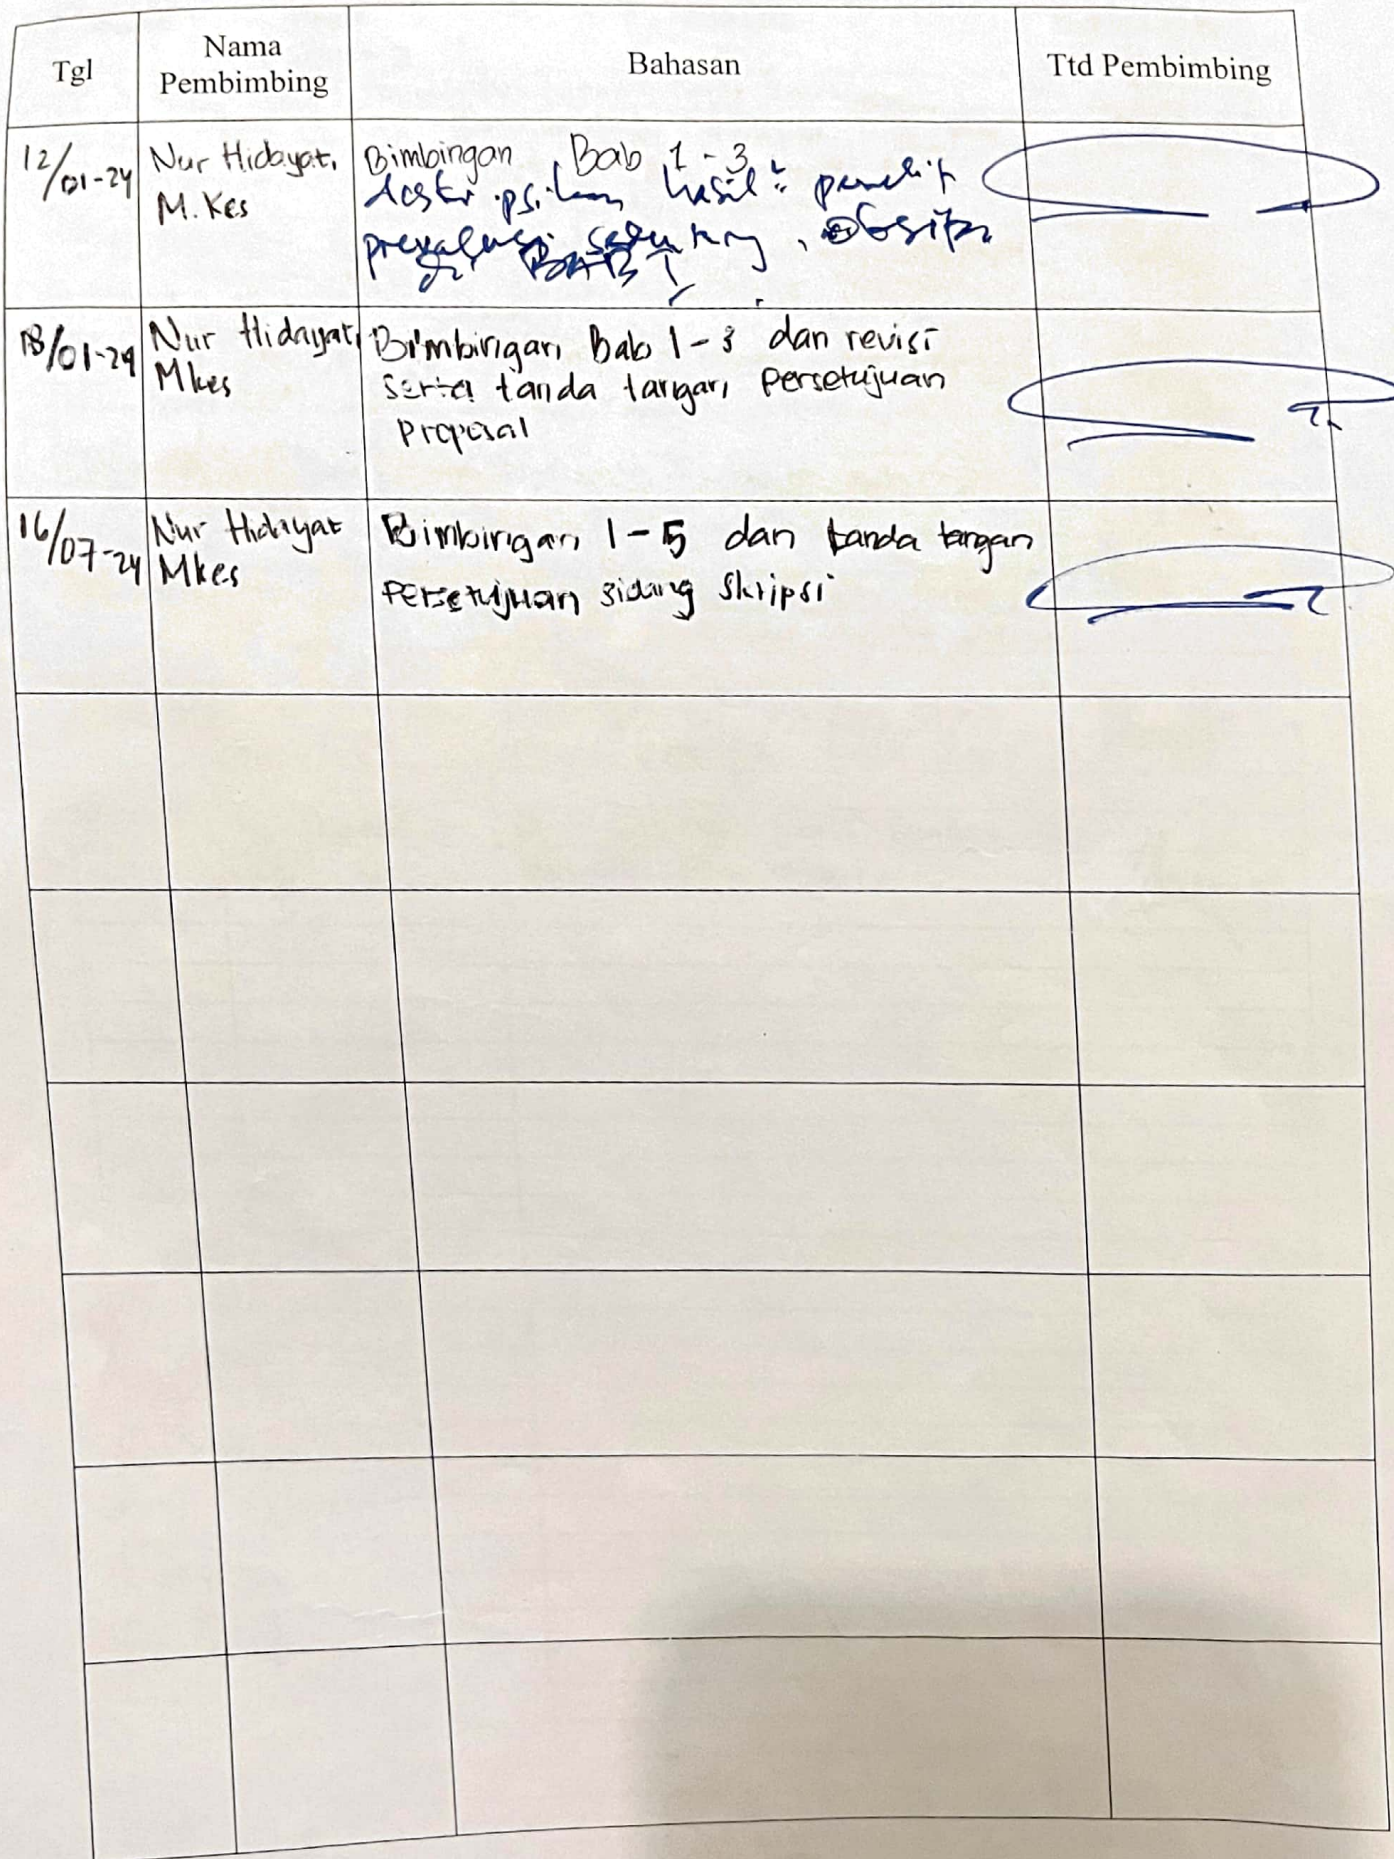 Tgl
Nama
Pembimbing
Bahasan
Ttd Pembimbing
12/01-24
Nur Hidayat,
M. Kes
Bimbingan Bab 1 - 3
hasil²
di BAB I
18/01-24
Nur Hidayat,
Mkes
Bimbingan Bab 1 - 3 dan revisi
serta tanda tangan persetujuan
proposal
16/07-24
Nur Hidayat
Mkes
Bimbingan 1 - 5 dan tanda tangan
Persetujuan sidang skripsi